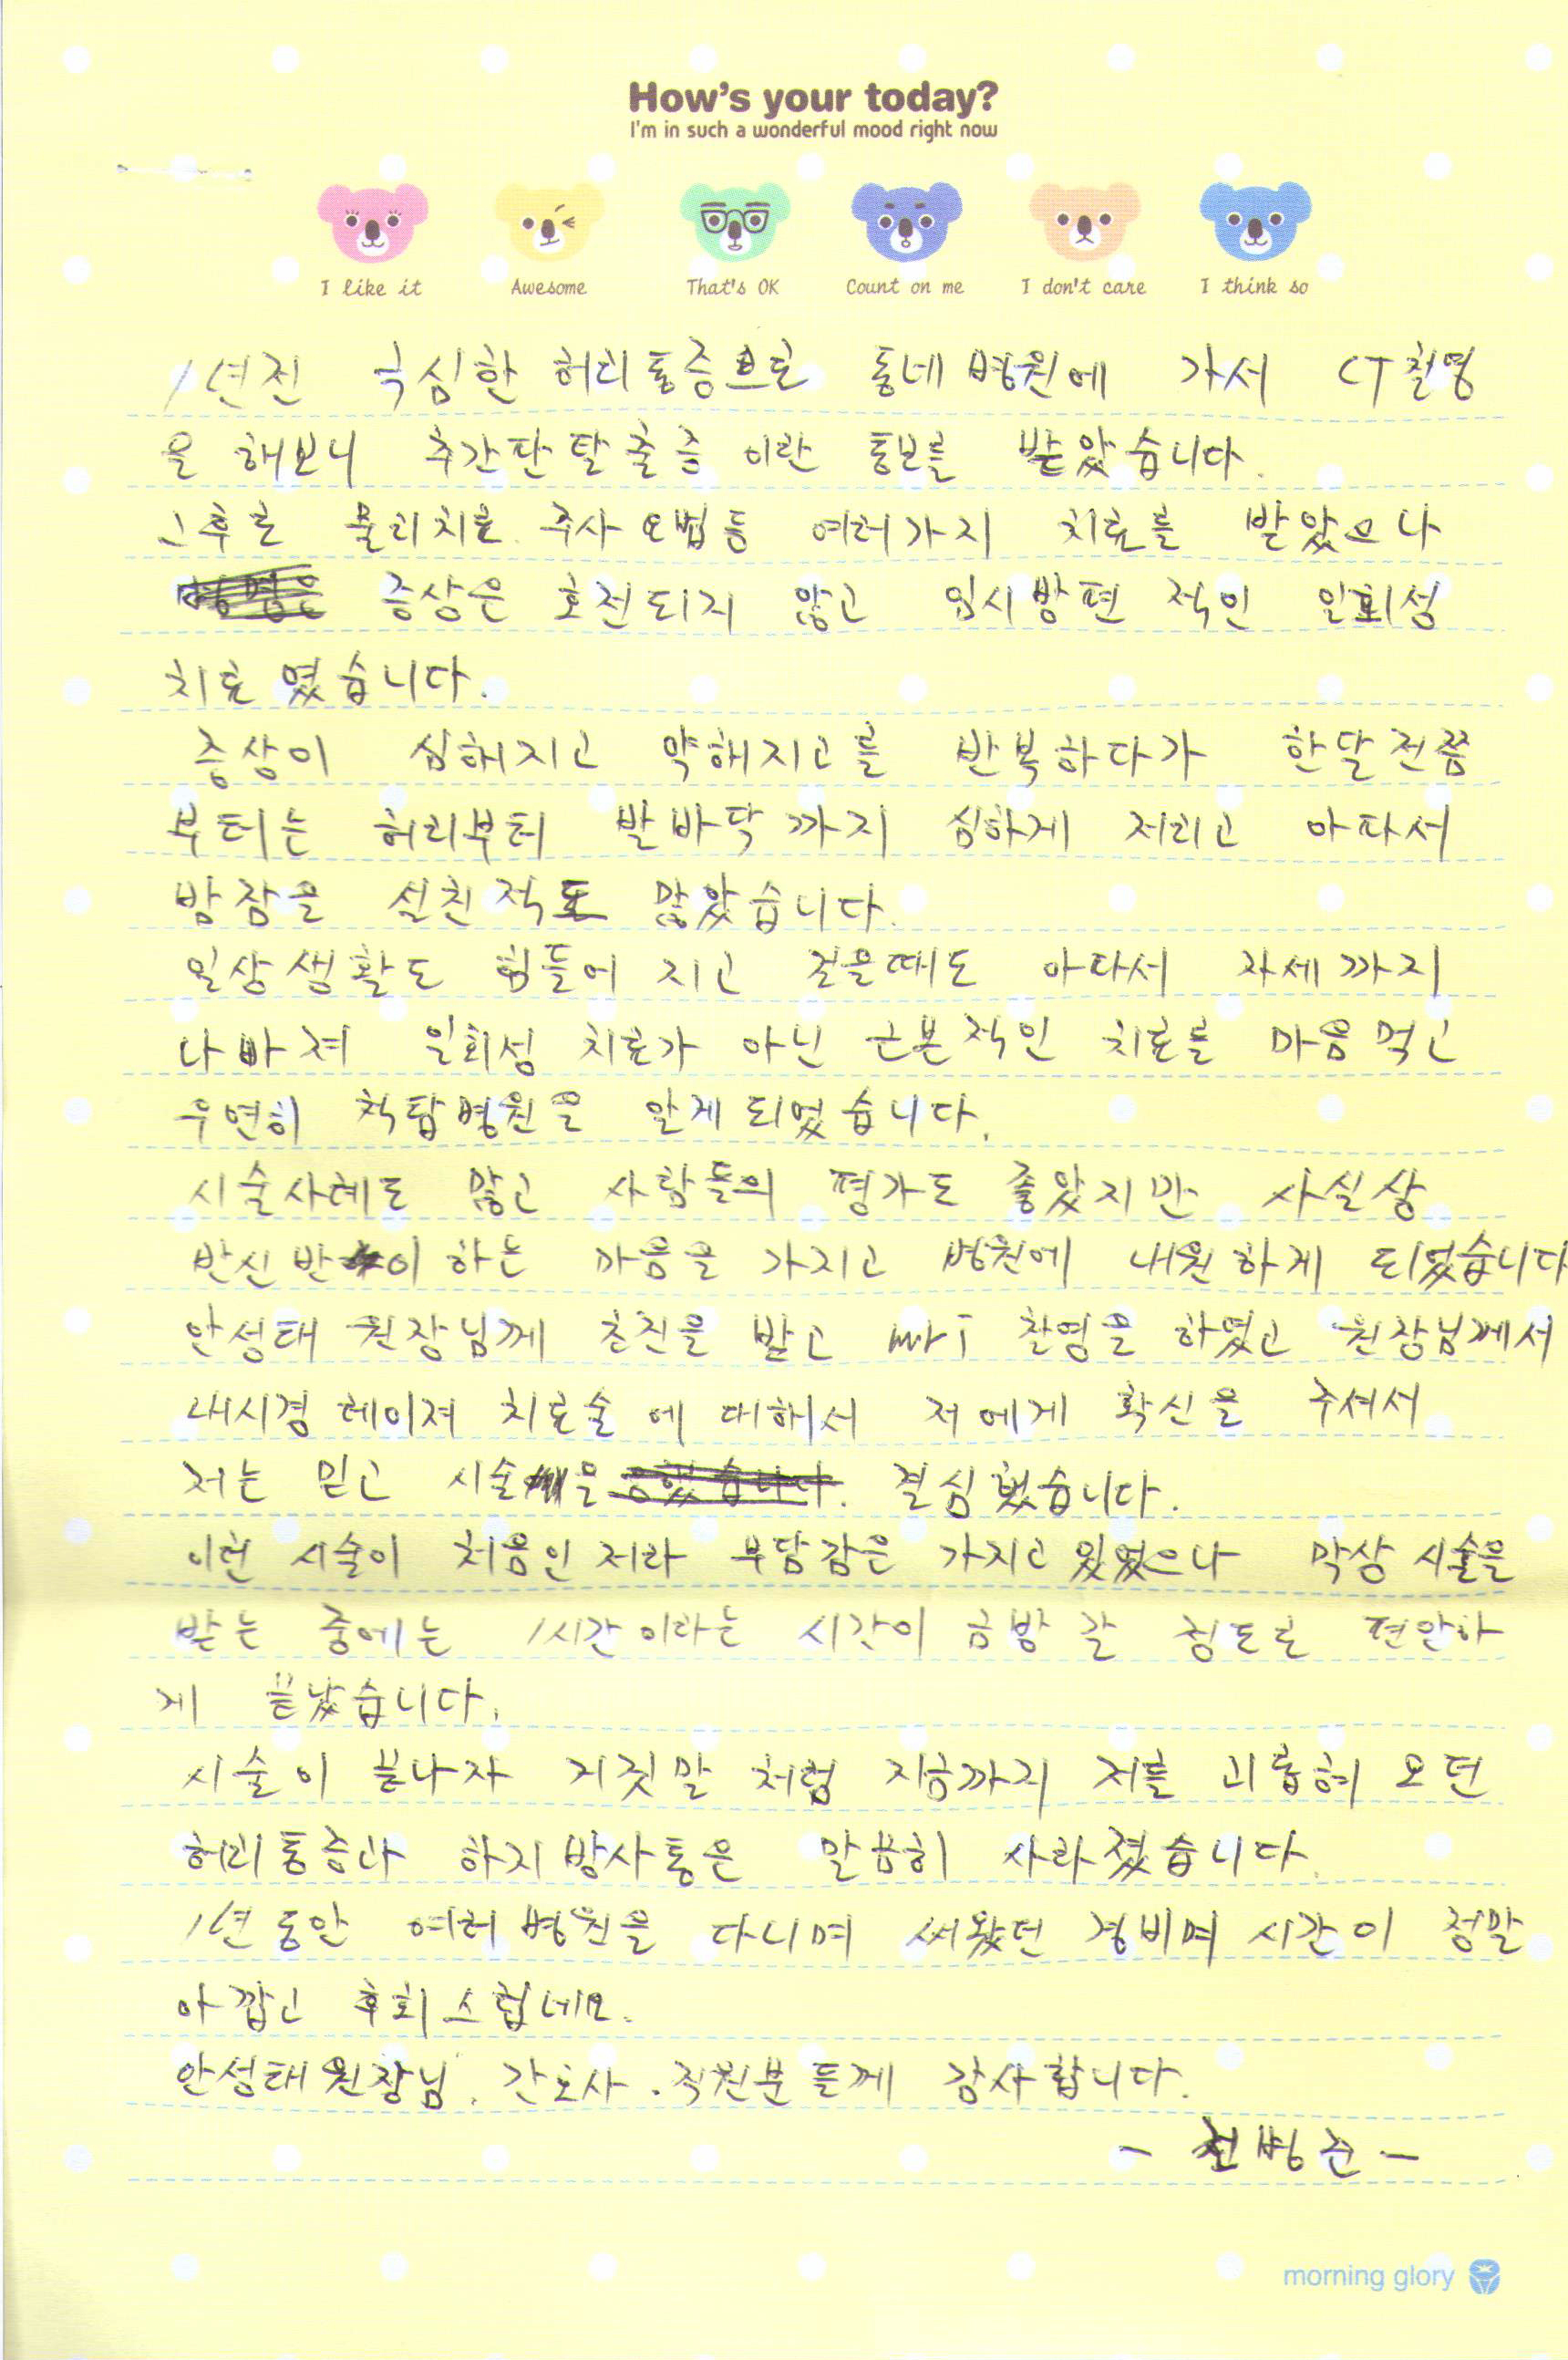 How's your today?
I'm in such a wonderful mood right now
I like it Awesome That's OK Count on me I don't care I think so
1년전 극심한 허리통증으로 동네병원에 가서 CT촬영
을 해보니 추간판탈출증 이란 통보를 받았습니다.
그후로 물리치료. 주사요법등 여러가지 치료를 받았으나
증상은 호전되지 않고 임시방편 적인 일회성
치료 였습니다.
증상이 심해지고 약해지고를 반복하다가 한달전쯤
부터는 허리부터 발바닥까지 심하게 저리고 아파서
밤잠을 설친적도 많았습니다.
일상생활도 힘들어 지고 걸을때도 아파서 자세까지
나빠져 일회성 치료가 아닌 근본적인 치료를 마음먹고
우연히 척탑병원을 알게되었습니다.
시술사례도 많고 사람들의 평가도 좋았지만 사실상
반신반이하는 마음을 가지고 병원에 내원하게 되었습니다
안성태 원장님께 초진을 받고 MRI 촬영을 하였고 원장님께서
내시경 레이져 치료술에 대해서 저에게 확신을 주셔서
저는 믿고 시술을 결심했습니다.
이런 시술이 처음인 저라 부담감은 가지고 있었으나 막상 시술을
받는 중에는 1시간이라는 시간이 금방 갈 정도로 편안하
게 끝났습니다.
시술이 끝나자 거짓말 처럼 지금까지 저를 괴롭혀 오던
허리통증과 하지방사통은 말끔히 사라졌습니다.
1년동안 여러병원을 다니며 써왔던 경비며 시간이 정말
아깝고 후회스럽네요.
안성태원장님. 간호사. 직원분들께 감사합니다.
- 천병준 -
morning glory